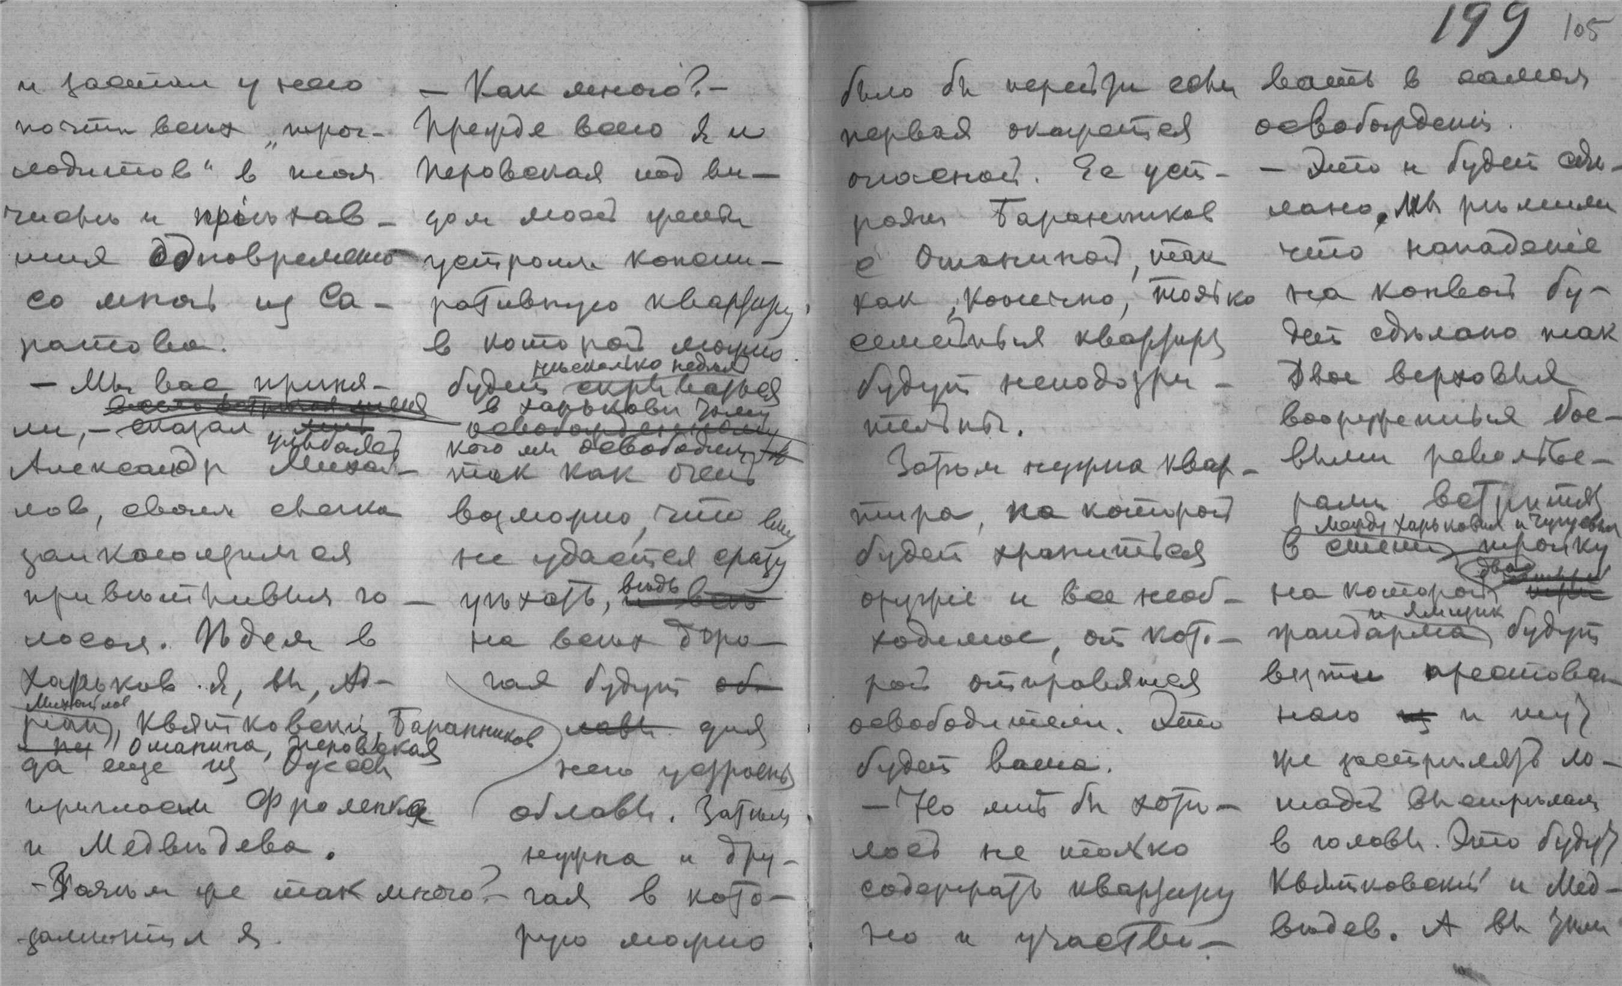 199 105
и застал у него
почти всех „трог-
лодитов“ в том
числе и приехав-
ших одновременно
со мной из Са-
ратова.
— Мы вас приня-
ли, — сказал
улыбаясь
Александр Михай-
лов, своим слегка
заикающимся
приветливым го-
лосом. Идем в
Харьков. Я, вы, Ад-
Михайлов
риан, Квятковский, Баранников
Ошанина, Перовская
да еще из Одессы
пригласим Фроленка
и Медведева.
— Зачем же так много? —
заметил я.
— Как много? —
Прежде всего я и
Перовская под ви-
дом моей жены
устроим конспи-
ративную квартиру,
в которой можно
несколько недель
будет скрываться
в Харькове тому
освобожденному
кого мы освободим
так как очень
возможно, что ему
не удастся сразу
уехать, ведь
на всех доро-
гах будут об
лавы для
него устроены
облавы. Затем
нужна и дру-
гая в кото-
рую можно
было бы перейти если
первая окажется
опасной. Ее уст-
роят Баранников
с Ошаниной, так
как, конечно, только
семейныя квартиры
будут неподозри-
тельны.
Затем нужна квар-
тира, на которой
будет храниться
оружие и все необ-
ходимое, от кото-
рой отправятся
освободители. Это
будет ваша.
— Но мне бы хоте-
лось не только
содержать квартиру
но и участво-
вать в самом
освобождении.
— Это и будет сде-
лано. Мы решили
что нападение
на конвой бу-
дет сделано так
Двое верховых
вооруженныя бое-
выми револьве-
рами встретят
между Харьковом и Чугуевом
в степи тройку
два
на которой
и ямщик
жандарма будут
везти арестован-
наго и тут
же застрелят ло-
шадь выстрелом
в голову. Это будут
Квятковский и Мед-
ведев. А вы